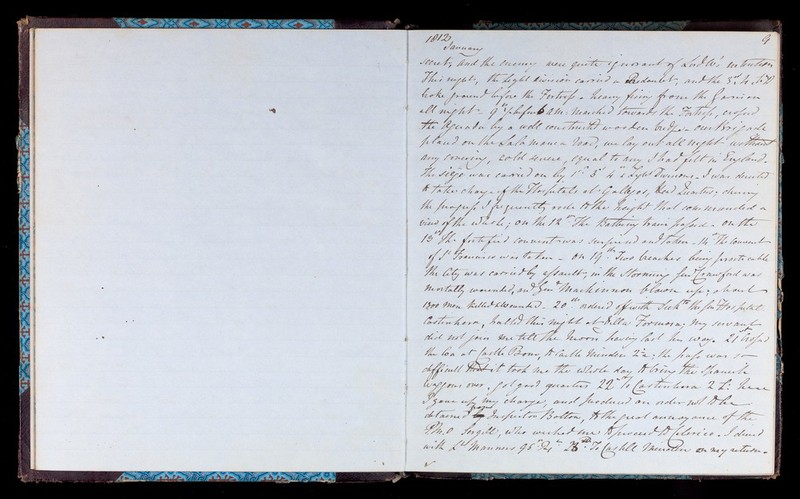 1812 9
January
secret, and the enemy were quite ignorant of Lord Ws intention
This night, the light division carried a Redoubt, and the 3d
broke ground before the Fortress a heavy firing from the Garrison
all night - 9th before 6 am. marched towards the Fortress, crossed
the Agueda by a well constructed wooden bridge our brigade
placed on the Salamanca road, we lay out all night without
any covering, cold severe, equal to any I had felt in England.
the siege was carried on by 1st 3d 4th & Light Divisions. I was directed
to take charge of the Hospitals at Gallegos, Head Quarters, during
the progress I frequently rode to the height that commanded a
view of the whole; on the 12th The Battering train passed - on the
13th The fortified convent was surprised and taken. 14th The Convent
of St Francisco was taken - On 19th Two breaches being practicable
the City was carried by assault; in the Storming Genl Crawfurd was
mortally wounded, and Genl Mackinnon blown up; about
1300 men killed & wounded. 20th ordered off with Sick to the Genl Hospital
halted this night at Villa Formosa; my servant
did not join me till the Morn having lost his way. 21st crossed
the Coa at Castle Bome, to Castle Mendon 2 L; the pass was so
difficult that it took me the whole day to bring the Spanish
waggons over, got good quarter 22d to 2 L: here
I gave up my charge, and produced an order not to be
detained from Inspector Bolton, to the great annoyance of the
P.M.O who wished me to proceed to Celorico. I dined
with Lt Manners 95th Regt To Castle Mendon on my return.